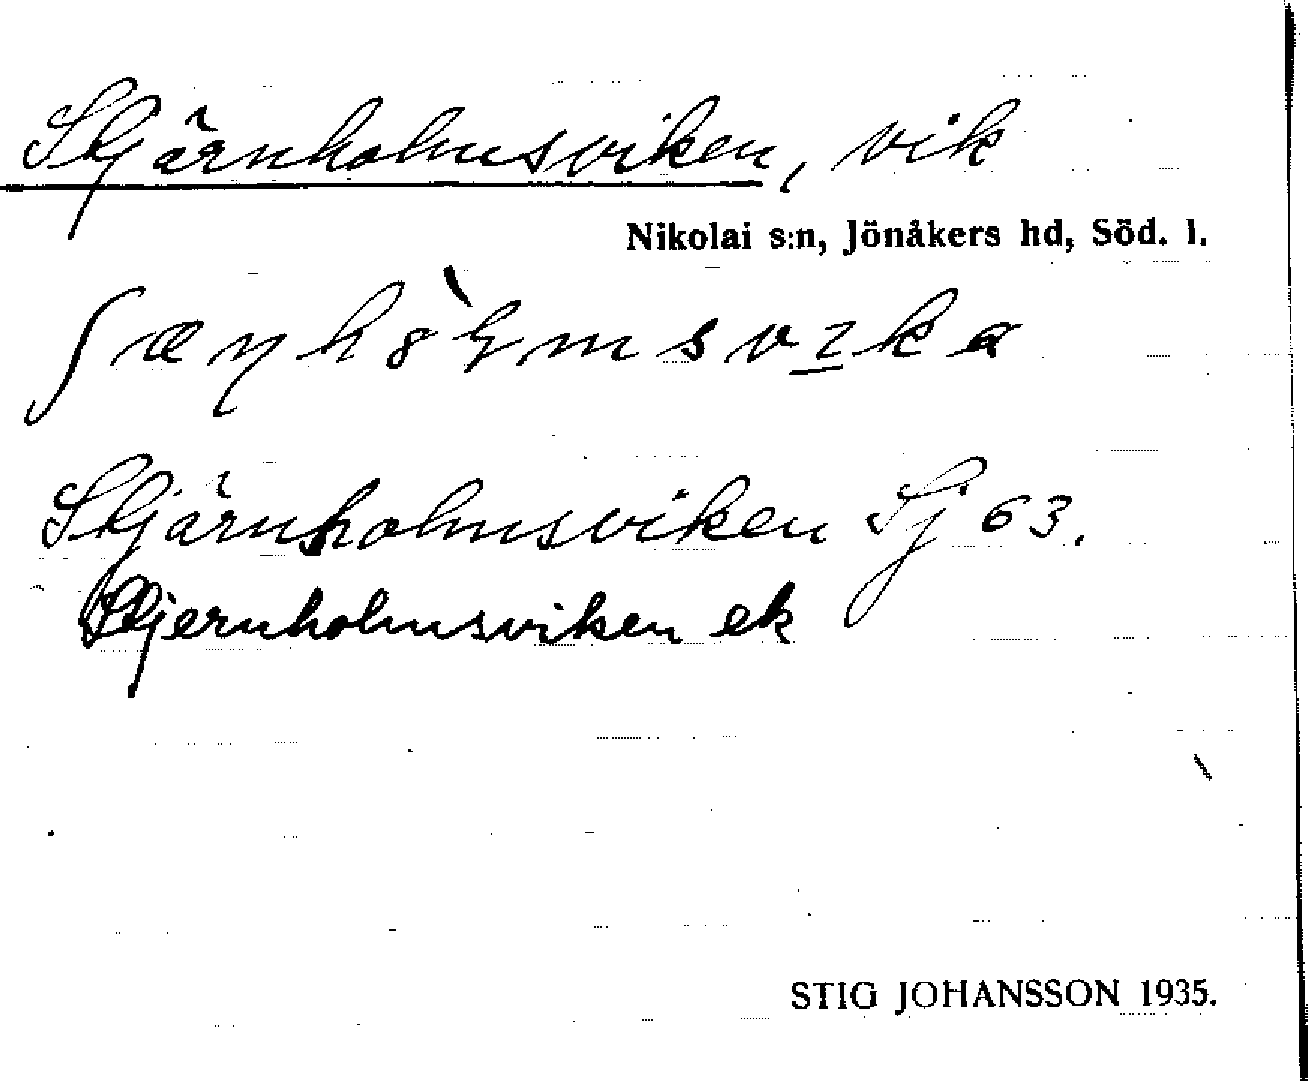 Skjärnholmsviken, vik
Nikolai s:n, Jönåkers hd, Söd. l.
Skjärnholmsviken Sj 63.
Skjernholmsviken ek
STIG JOHANSSON 1935.